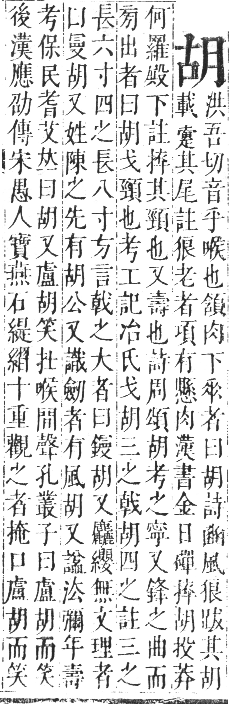 胡
洪吾切音乎喉也頷肉下垂者曰胡詩豳風狼跋其胡
載疐其尾註狼老者項有懸肉漢書金日磾捽胡投莽
何羅殿下註捽其頸也又壽也詩周頌胡考之寧又鋒之曲而
旁出者曰胡戈頸也考工記冶氏戈胡三之戟胡四之註三之
長六寸四之長八寸方言戟之大者曰鏝胡又麤纓無文理者
曰曼胡又姓陳之先有胡公又識劒者有風胡又諡法彌年壽
考保民耆艾皆曰胡又盧胡笑在喉間聲孔叢子曰盧胡而笑
後漢應劭傳宋愚人寶燕石緹䌌十重觀之者掩口盧胡而笑